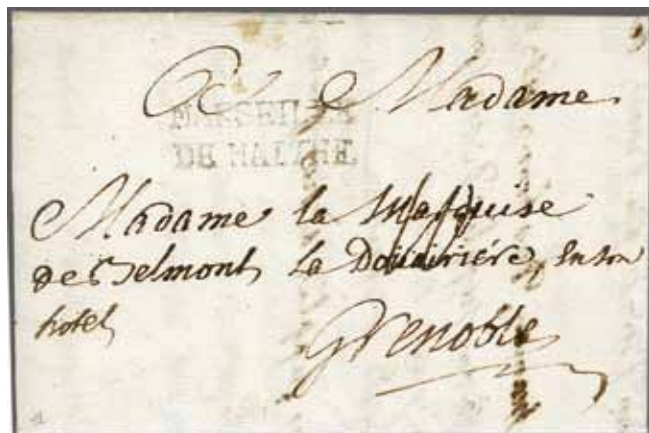 A Madame
MARSEILLE
DE MALTHE
Madame la Marquise
de Belmont La Douairiére, en son
hotel
Grenoble